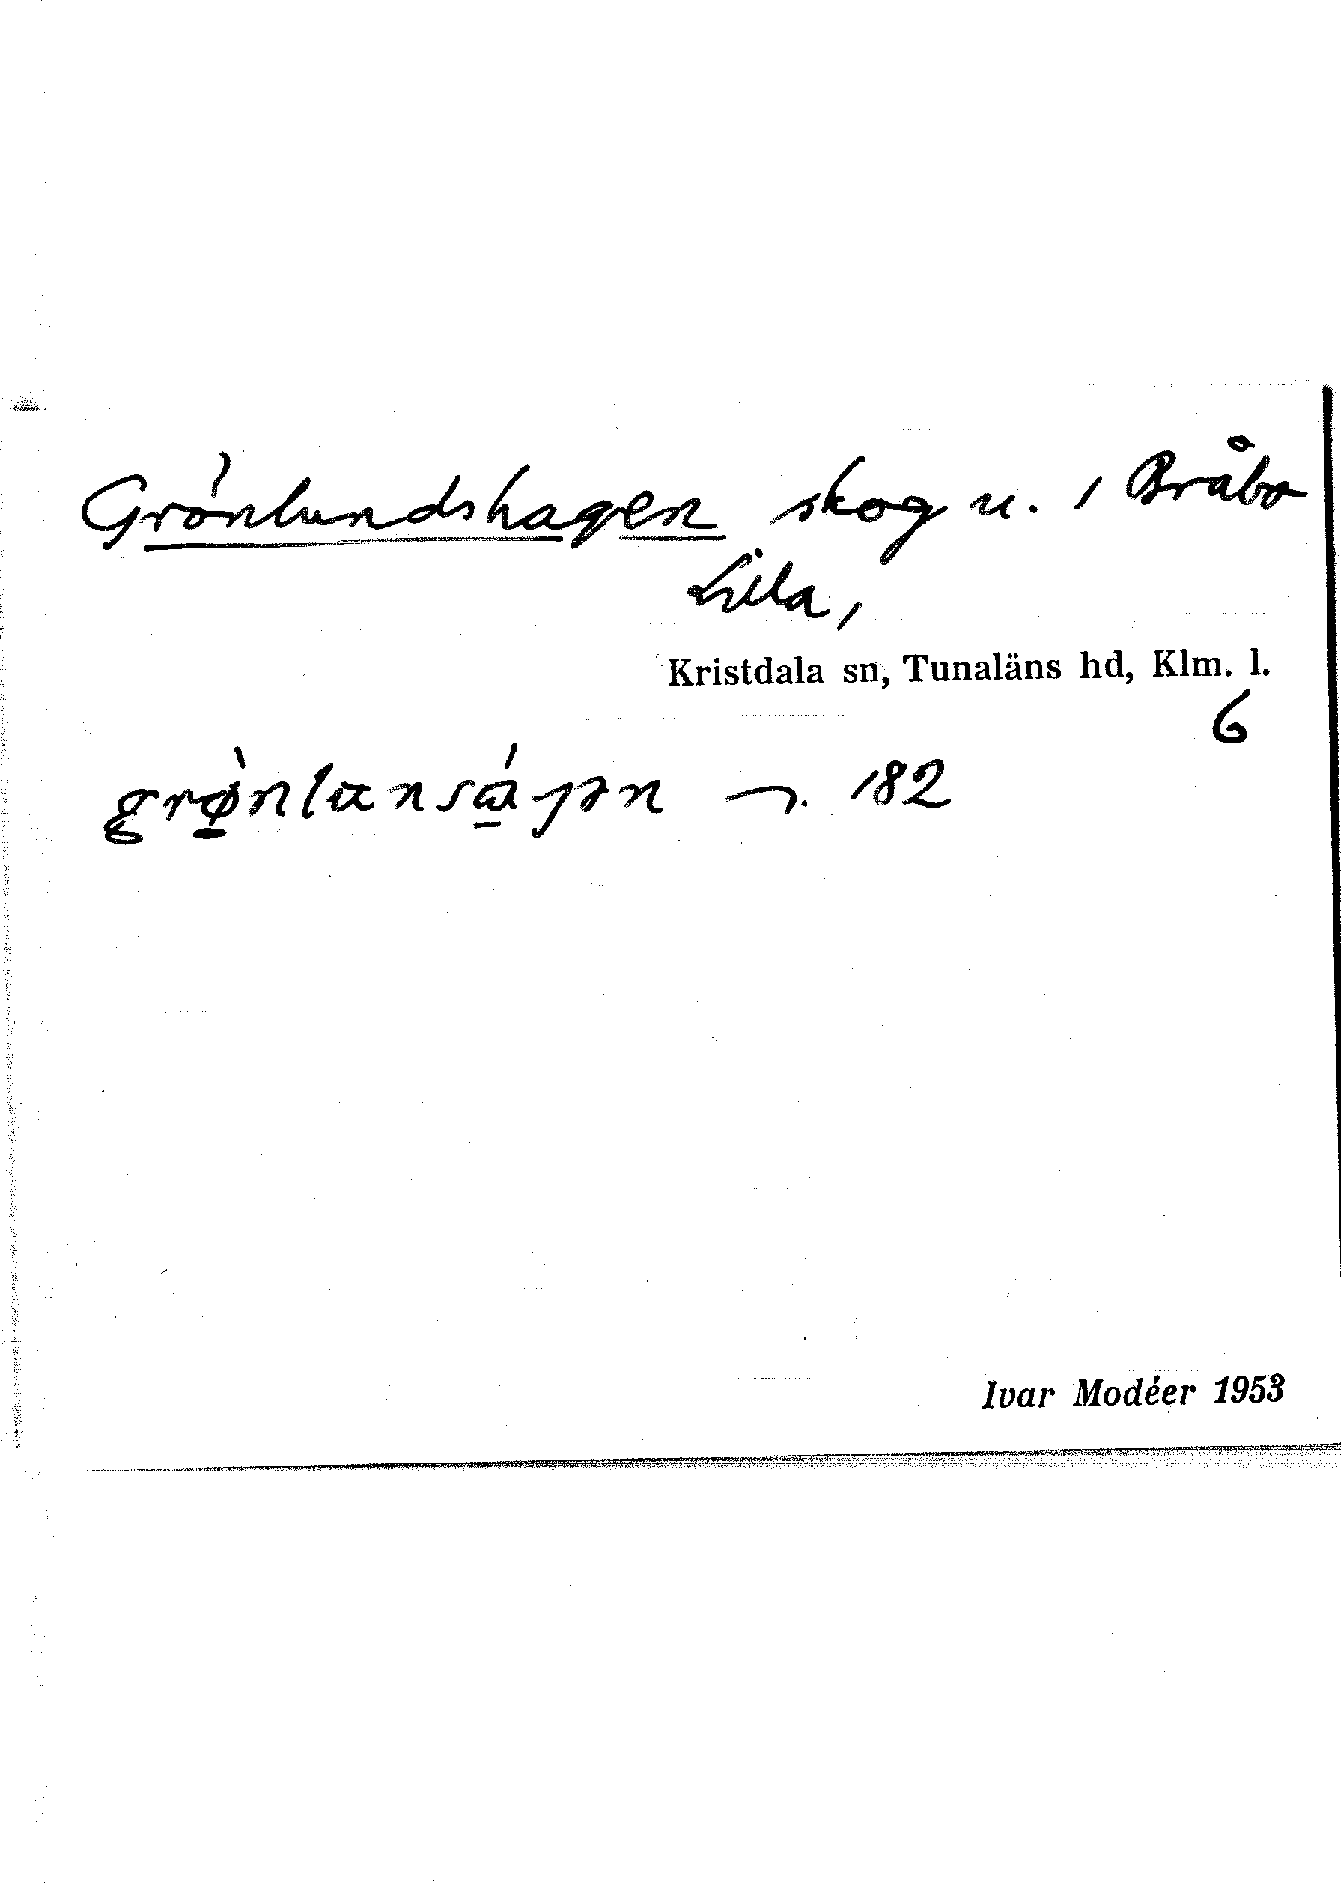 Grönlundshagen skog u. / Bråbo
Lilla,
Kristdala sn, Tunaläns hd, Klm. l.
6
182
Ivar Modéer 1953